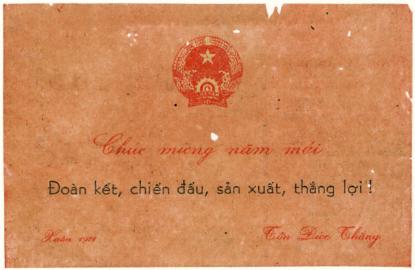 Chúc mừng năm mới
Đoàn kết, chiến đấu, sản xuất, thắng lợi!
Xuân
Tôn Đức Thắng